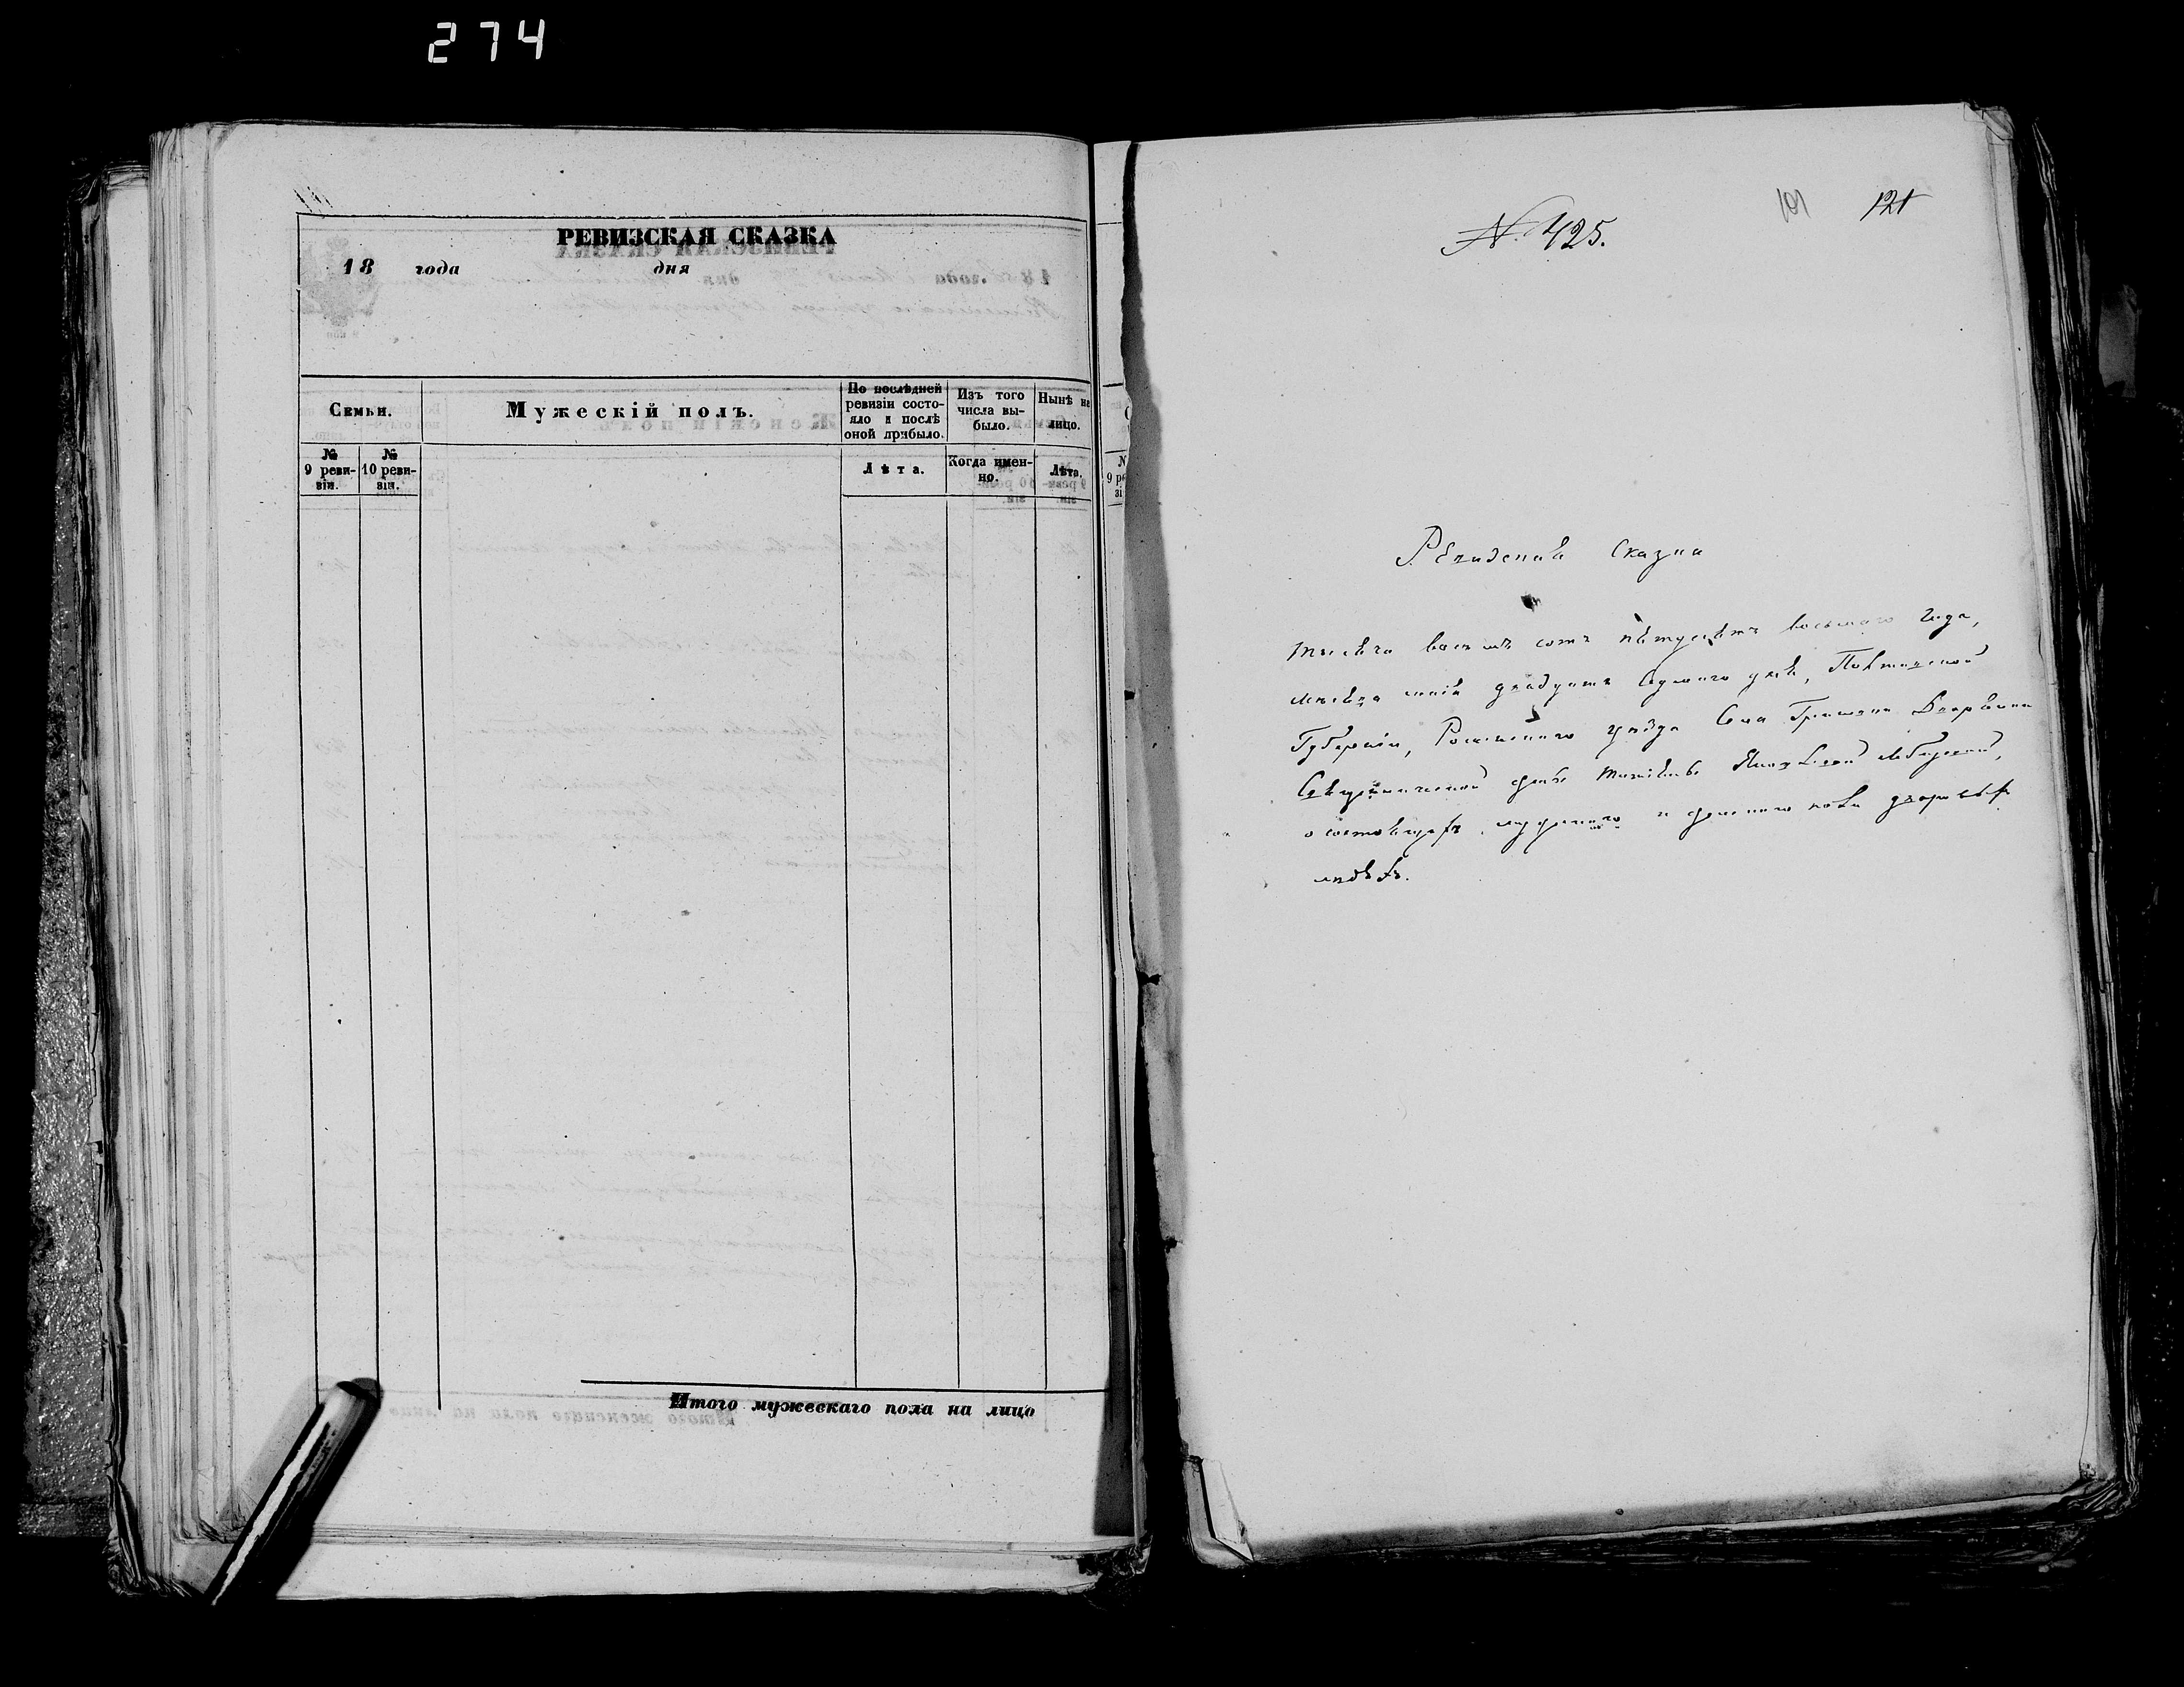 274
РЕВИЗСКАЯ СКАЗКА
18 года дня
Семьи.
Мужескій полъ.
По послѣдней ревизіи состо-
яло и послѣ
оной прибыло.
Изъ того
числа вы-
было.
Нынѣ на
лицо.
№
9 реви-
зіи.
№
10 реви-
зіи.
Лѣта.
Когда имен-
но.
Лѣта.
Итого мужескаго пола на лицо
101 121
№ 425.
Ревизская Сказка
Тысяча восемь сотъ пятьдесятъ восьмого года,
мѣсяца маія двадцать седьмого дня, Полтавской
Губерніи, Роменского уѣзда Села
о состоящихъ мужеского и женского пола дворовыхъ
людяхъ.